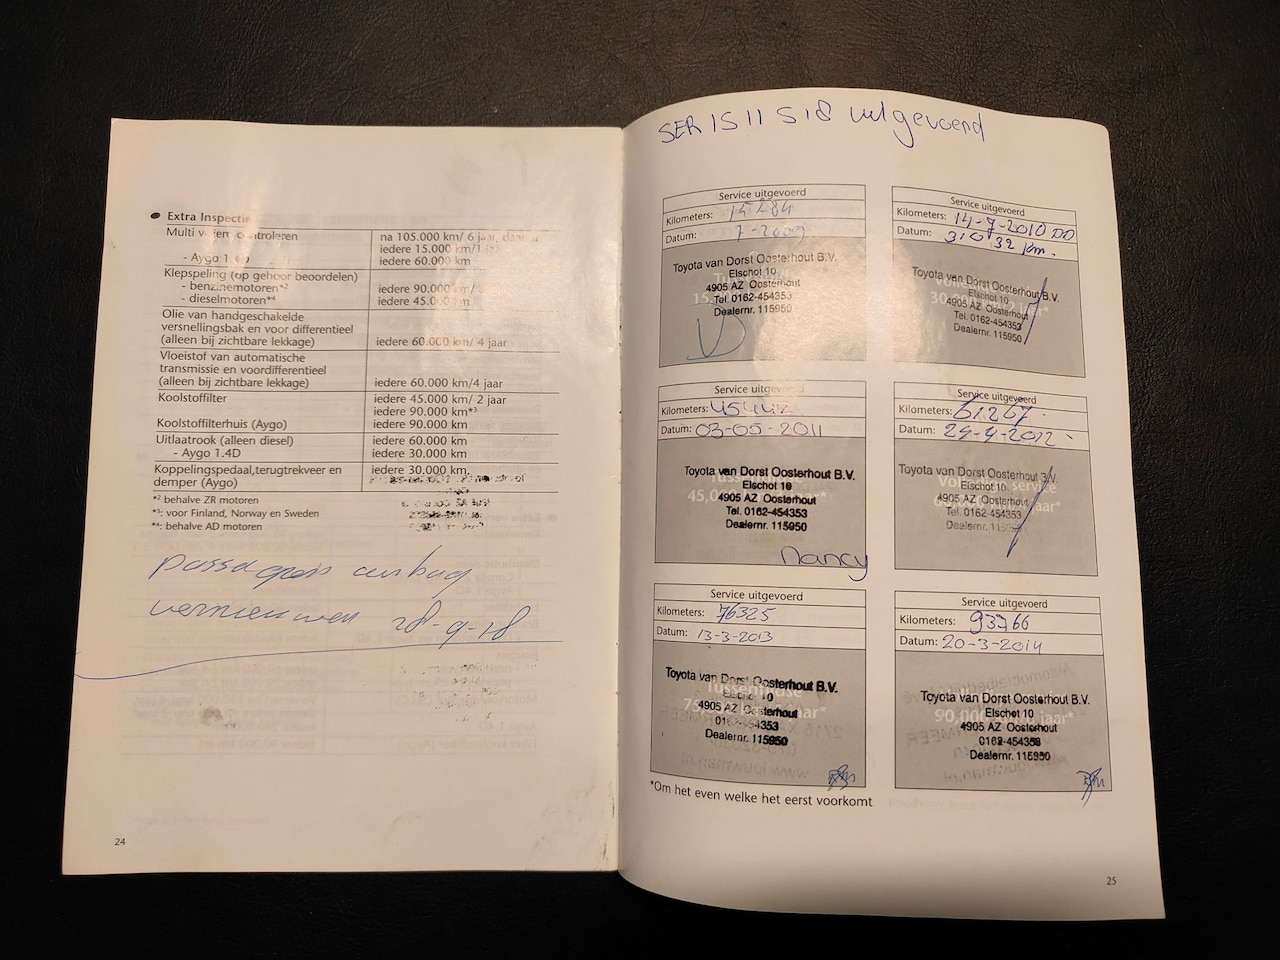 Extra Inspectie
Multi controleren
na 105.000 km/ 6 jaar, daarna
iedere 15.000 km/1
- Aygo 1.4D
iedere 60.000 km
Klepspeling (op gehoor beoordelen)
- benzinemotoren*2
iedere 90.000 km/
- dieselmotoren*4
iedere 45.000 km
Olie van handgeschakelde
versnellingsbak en voor differentieel
(alleen bij zichtbare lekkage)
iedere 60.000 km/ 4 jaar
Vloeistof van automatische
transmissie en voordifferentieel
(alleen bij zichtbare lekkage)
iedere 60.000 km/4 jaar
Koolstoffilter
iedere 45.000 km/ 2 jaar
iedere 90.000 km*3
Koolstoffilterhuis (Aygo)
iedere 90.000 km
Uitlaatrook (alleen diesel)
iedere 60.000 km
- Aygo 1.4D
iedere 30.000 km
Koppelingspedaal,terugtrekveer en
demper (Aygo)
iedere 30.000 km.
*2 behalve ZR motoren
*3: voor Finland, Norway en Sweden
*4: behalve AD motoren
passagiers airbag
vernieuwen 28-9-18
24
SER IS II S18 uitgevoerd
Service uitgevoerd
Kilometers:
Datum: 7-2009
Toyota van Dorst Oosterhout B.V.
Elschot 10
4905 AZ Oosterhout
Tel. 0162-454353
Dealernr. 115950
Service uitgevoerd
Kilometers: 14-7-2010
Datum: 31032 km.
Toyota van Dorst Oosterhout B.V.
Elschot 10
4905 AZ Oosterhout
Tel. 0162-454353
Dealernr. 115950
Service uitgevoerd
Kilometers: 45442
Datum: 03-05-2011
Toyota van Dorst Oosterhout B.V.
Elschot 10
4905 AZ Oosterhout
Tel. 0162-454353
Dealernr. 115950
Nancy
Service uitgevoerd
Kilometers: 61267
Datum: 24-4-2012
Toyota van Dorst Oosterhout B.V.
Elschot 10
4905 AZ Oosterhout
Tel. 0162-454353
Dealernr.
Service uitgevoerd
Kilometers: 76325
Datum: 13-3-2013
Toyota van Dorst Oosterhout B.V.
Elschot 10
4905 AZ Oosterhout
Dealernr. 115950
Service uitgevoerd
Kilometers: 93766
Datum: 20-3-2014
Toyota van Dorst Oosterhout B.V.
Elschot 10
4905 AZ Oosterhout
0162-454353
Dealernr. 115950
*Om het even welke het eerst voorkomt
25